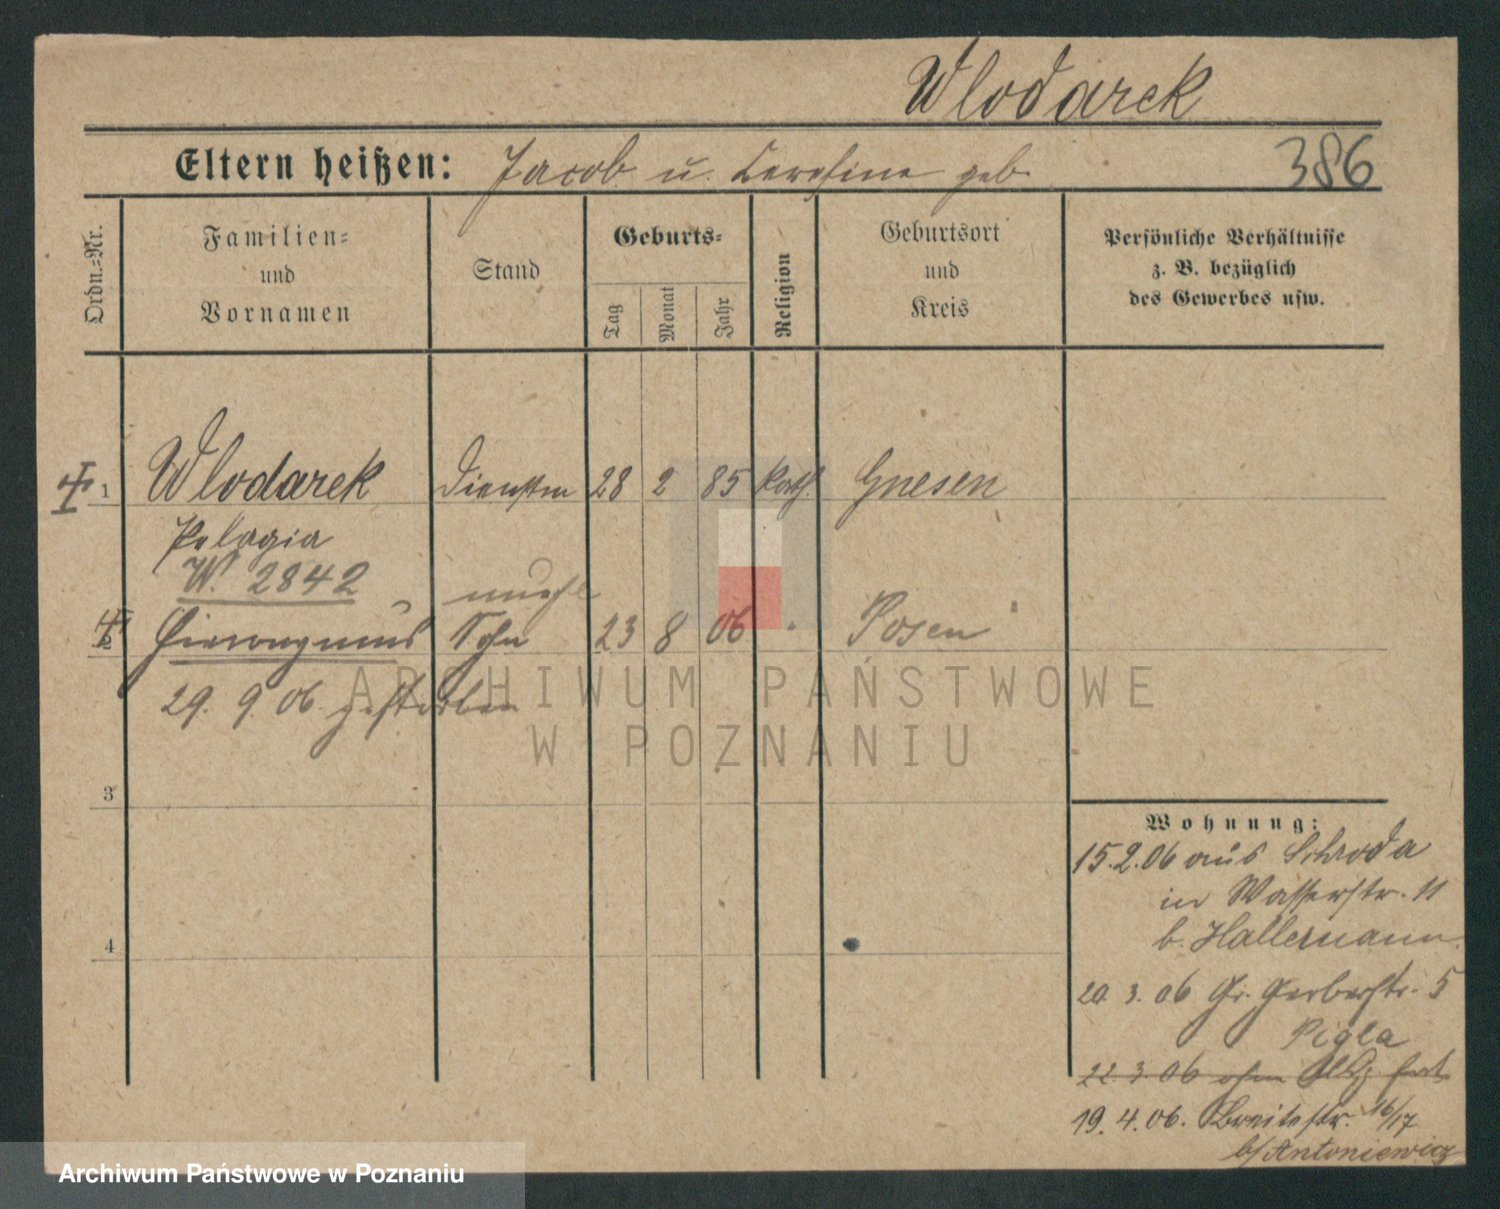 Wlodarek
Eltern heißen: Jacob u. geb.
386
Ordn.-Nr.
Familien-
und
Vornamen
Stand
Geburts-
Tag
Monat
Jahr
Religion
Geburtsort
und
Kreis
Persönliche Verhältnisse
z. B. bezüglich
des Gewerbes usw.
1 Wlodarek Dienstm 28 2 85 kath. Gnesen
Pelagia
W. 2842
unehl
2 Hieronymus Sohn 23 8 06 Posen
29. 9. 06. gestorben
ARCHIWUM PAŃSTWOWE
W POZNANIU
3
4
Wohnung:
15.2.06 aus Schroda
in Wasserstr. 11
b. Hallermann
20. 3. 06 Gr. Gerberstr. 5
Pigla
22. 3. 06 ohne Abg. fort
19. 4. 06. Breitestr. 16/17
b/Antoniewicz
Archiwum Państwowe w Poznaniu